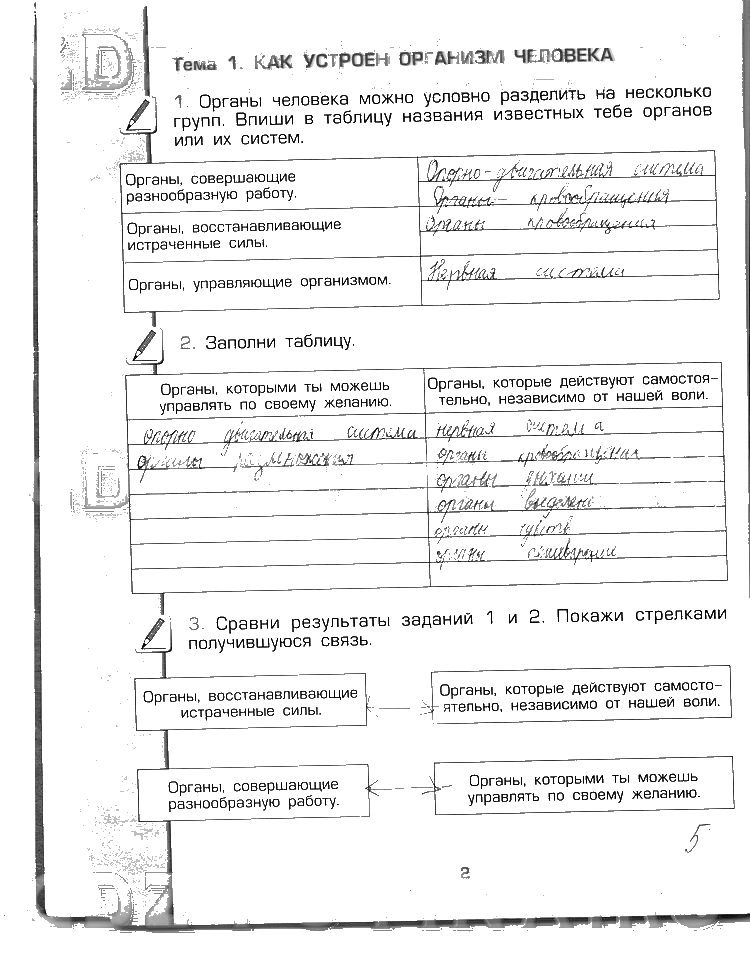 Тема 1. КАК УСТРОЕН ОРГАНИЗМ ЧЕЛОВЕКА
1. Органы человека можно условно разделить на несколько
групп. Впиши в таблицу названия известных тебе органов
или их систем.
Органы, совершающие
разнообразную работу.
Опорно-двигательная система
Органы кровообращения
Органы, восстанавливающие
истраченные силы.
Органы кровообращения
Органы, управляющие организмом.
Нервная система
2. Заполни таблицу.
Органы, которыми ты можешь
управлять по своему желанию.
Органы, которые действуют самостоя-
тельно, независимо от нашей воли.
опорно двигательная система
нервная система
органы размножения
органы кровообращения
органы дыхания
органы
органы чувств
органы
3. Сравни результаты заданий 1 и 2. Покажи стрелками
получившуюся связь.
Органы, восстанавливающие
истраченные силы.
Органы, которые действуют самосто-
ятельно, независимо от нашей воли.
Органы, совершающие
разнообразную работу.
Органы, которыми ты можешь
управлять по своему желанию.
5
2